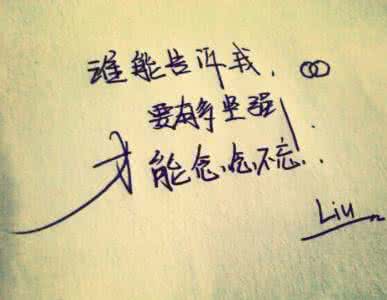 谁能告诉我，
要有多坚强
才能念念不忘...
Liu